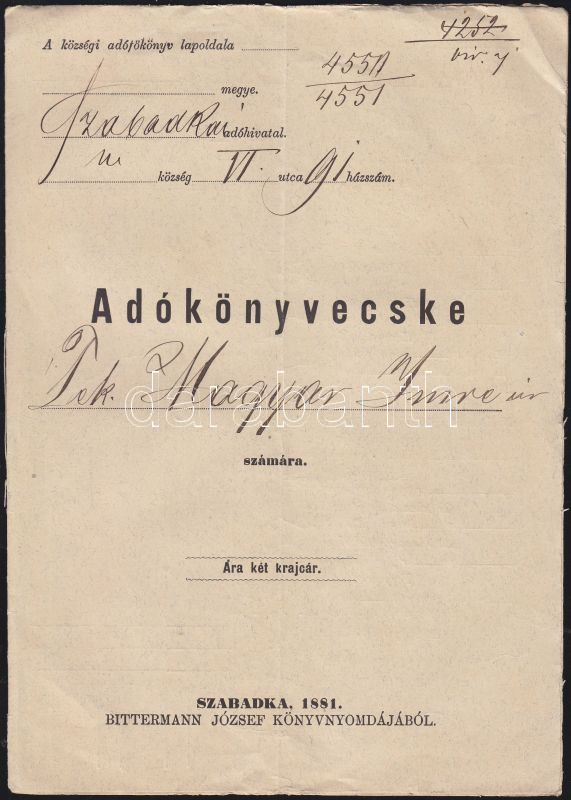 4252
A községi adófőkönyv lapoldala
4551
megye.
Szabadkai adóhivatal.
község VI. utca 91 házszám.
Adókönyvecske
Tek. Magyar Imre úr
darabanth
számára.
Ára két krajcár.
SZABADKA, 1881.
BITTERMANN JÓZSEF KÖNYVNYOMDÁJÁBÓL.